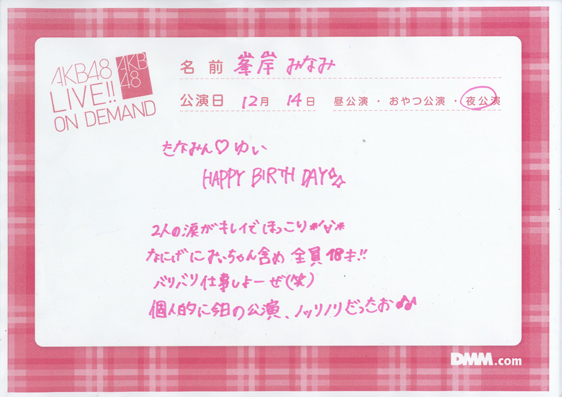 AKB48
LIVE!!
ON DEMAND
AKB
48
名前 峯岸 みなみ
公演日 12月 14日 昼公演・おやつ公演・夜公演
たなみん♡ゆい
HAPPY BIRTH DAY♫
2人の涙がキレイでほっこり*'∀'*
なにげにみぃちゃん含め全員18才!!
バリバリ仕事しよーぜ(笑)
個人的に今日の公演、ノッリノリだったお♪♪
DMM.com